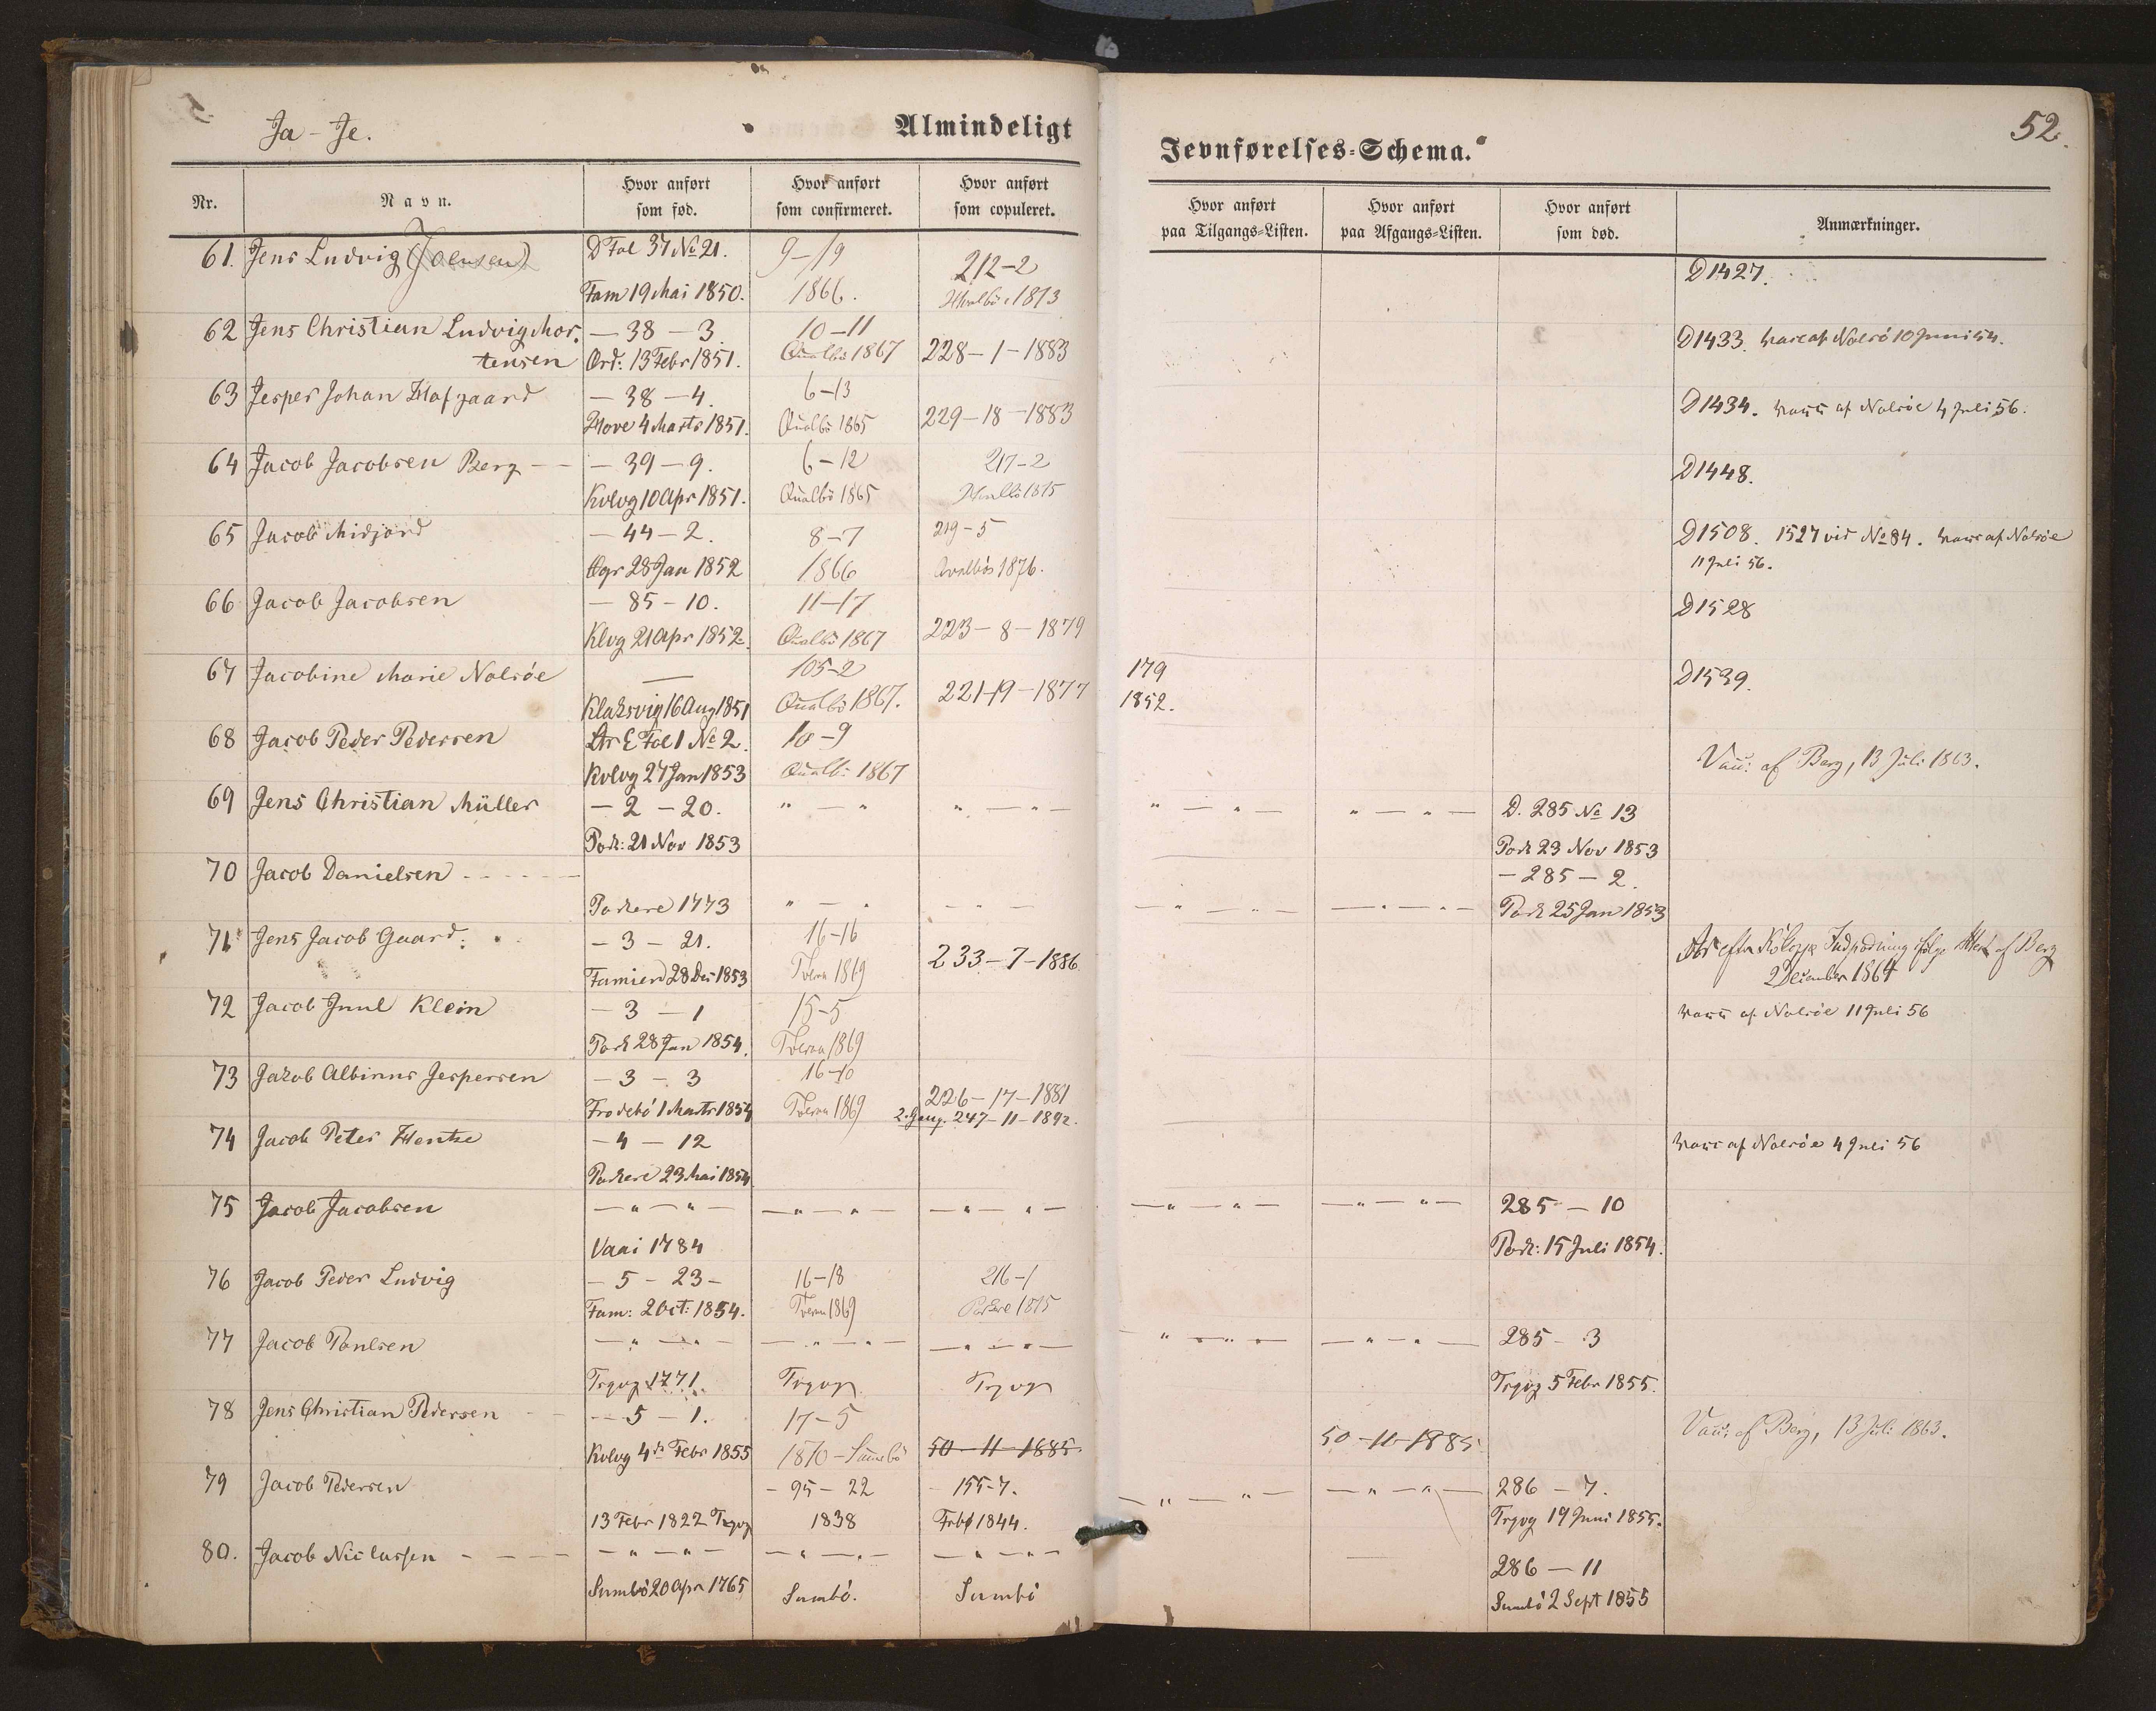 Ja - Je.
Almindeligt
Jevnførelses-Schema.
52.
Nr.
Navn.
Hvor anført som fød.
Hvor anført som confirmeret.
Hvor anført som copuleret.
Hvor anført paa Tilgangs-Listen.
Hvor anført paa Afgangs-Listen.
Hvor anført som død.
Anmærkninger.
61. Jens Ludvig (Joensen) D Fol 37 No 21. 9-19 212-2 D1427.
Fam 19 Mai 1850. 1866. Hvalbö 1873
62 Jens Christian Ludvig Mor- — 38 — 3. 10-11 D1433. vacc af Nolsö 10 Juni 54.
tensen Ørd: 13 Febr 1851. Qualbö 1867 228-1-1883
63 Jesper Johan Hofgaard — 38 — 4. 6-13 D1434. vacc af Nolsöe 4 Juli 56.
Hove 4 Marts 1851. Qualbö 1865 229-18-1883
64 Jacob Jacobsen Berg — 39 — 9. 6-12 217-2 D1448.
Kvlvg 10 Apr 1851. Qualbö 1865 Hvalbö 1875
65 Jacob Midjord — 44 — 2. 8-7 219-5 D1508. 1527 vid No 84. vacc af Nolsöe
Øgr 28 Jan 1852 1866 Qvalbös 1876. 11 Juli 56.
66 Jacob Jacobsen — 85 — 10. 11-17 D1528
Klvg 21 Apr 1852. Qualbö 1867 223-8-1879
67 Jacobine Marie Nolsöe — 105-2 179 D1539.
Klaksvig 16 Aug 1851 Qualbö 1867. 221-19-1877 1852.
68 Jacob Peder Pedersen Ltr E Fol 1 No 2. 10-9 Vacc: af Berg, 13 Juli 1863.
Kvlvg 27 Jan 1853 Qualb: 1867
69 Jens Christian Müller — 2 — 20. " — " " — " — " — " — " — " — D. 285 No 13
Pork: 21 Nov 1853 Pork 23 Nov 1853
70 Jacob Danielsen - - - - — 285 — 2.
Porkere 1773 " — " — — — — " — " — — " — " — Pork 25 Jan 1853
71 Jens Jacob Gaard. — 3 — 21. 16-16 Indpodning ifølge Attest af Berg
Famien 28 Dec 1853 Tveraa 1869 233-7-1886 2 December 1864
72 Jacob Juul Klein — 3 — 1 15-5 vacc af Nolsöe 11 Juli 56
Pork 28 Jan 1854. Tveraa 1869
73 Jakob Albinus Jespersen — 3 — 3 16-10 226-17-1881
Frodebö 1 Marts 1854 Tveraa 1869 2. Gang. 247-11-1892.
74 Jacob Peter Hentze — 4 — 12 vacc af Nolsöe 4 Juli 56
Porkere 23 Mai 1854
75 Jacob Jacobsen — " — " — — " — " — — " — " — — " — " — — " — " — 285 — 10
Vaai 1784 Pork: 15 Juli 1854.
76 Jacob Peder Ludvig — 5 — 23 — 16-18 216-1
Fam: 2 Oct: 1854. Tveraa 1869 Porkere 1875
77 Jacob Poulsen — " — " — — " — " — — " — " — " — " — — " — " — 285 — 3
Trgvg 1771. Trgvg Trgvg Trgvg 5 Febr 1855.
78 Jens Christian Pedersen — 5 — 1. 17-5 Vacc: af Berg, 13 Juli 1863.
Kvlvg 4de Febr 1855 1870 - Sumbö 50-11-1885. 50-11-1885.
79 Jacob Pedersen — 95 — 22 — 155-7. — " — " — — " — " — 286 — 7.
13 Febr 1822 Trgvg 1838 Frbö 1844. Trgvg 19 Juni 1855.
80. Jacob Niclassen - - - — " — " — — " — " — — " — " — 286 — 11
Sumbö 20 Apr 1765 Sumbö. Sumbö Sumbö 2 Sept 1855